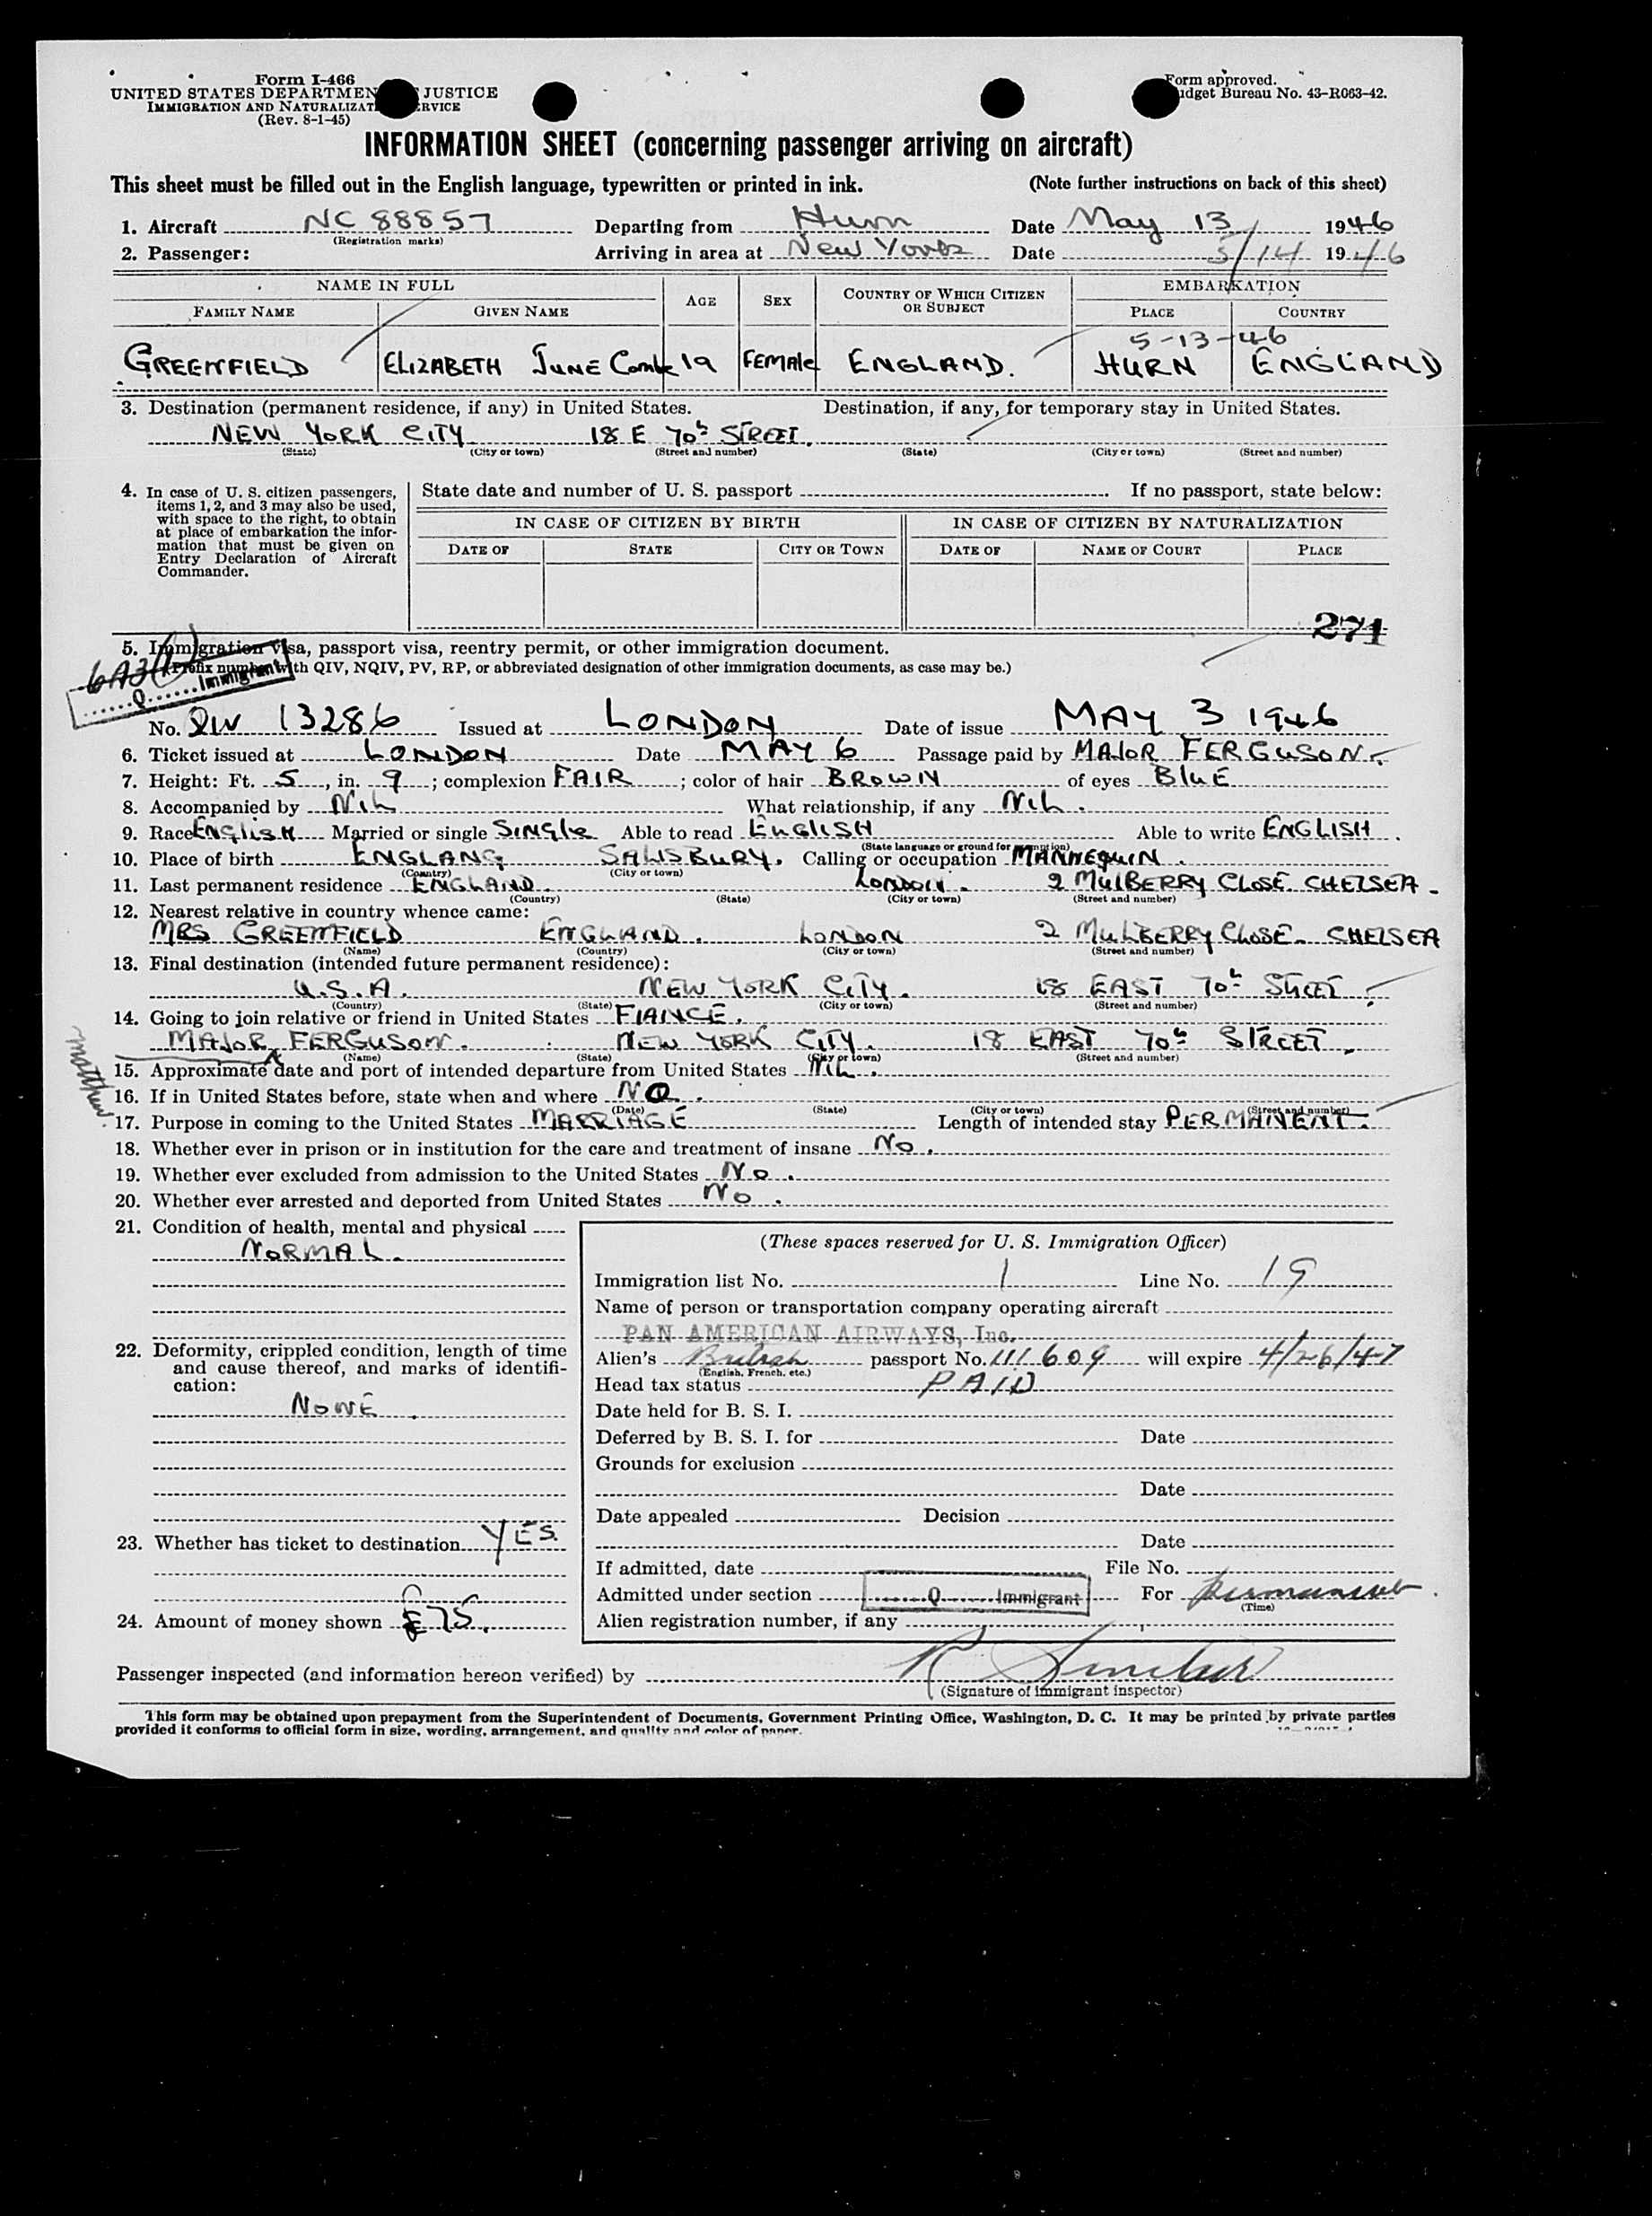 Form I-466
UNITED STATES DEPARTMEN JUSTICE
IMMIGRATION AND NATURALIZAT RVICE
(Rev. 8-1-45)
Form approved.
dget Bureau No. 43-R063-42.
INFORMATION SHEET (concerning passenger arriving on aircraft)
This sheet must be filled out in the English language, typewritten or printed in ink. (Note further instructions on back of this sheet)
1. Aircraft NC 88857 Departing from Hurn Date May 13 1946
(Registration marks)
2. Passenger: Arriving in area at New York Date 5/14 1946
NAME IN FULL AGE SEX COUNTRY OF WHICH CITIZEN OR SUBJECT EMBARKATION
FAMILY NAME GIVEN NAME PLACE COUNTRY
5-13-46
GREENFIELD ELIZABETH JUNE 19 FEMALE ENGLAND. HURN ENGLAND
3. Destination (permanent residence, if any) in United States. Destination, if any, for temporary stay in United States.
NEW YORK CITY 18 E 70th STREET.
(State) (City or town) (Street and number) (State) (City or town) (Street and number)
4. In case of U. S. citizen passengers, items 1, 2, and 3 may also be used, with space to the right, to obtain at place of embarkation the information that must be given on Entry Declaration of Aircraft Commander.
State date and number of U. S. passport . If no passport, state below:
IN CASE OF CITIZEN BY BIRTH IN CASE OF CITIZEN BY NATURALIZATION
DATE OF STATE CITY OR TOWN DATE OF NAME OF COURT PLACE
271
5. Immigration visa, passport visa, reentry permit, or other immigration document.
(Prefix number with QIV, NQIV, PV, RP, or abbreviated designation of other immigration documents, as case may be.)
6A3(1)
Q Immigrant
No. QIV 13286 Issued at LONDON Date of issue MAY 3 1946
6. Ticket issued at LONDON Date MAY 6 Passage paid by MAJOR FERGUSON.
7. Height: Ft. 5, in. 9; complexion FAIR; color of hair BROWN of eyes BLUE
8. Accompanied by NIL What relationship, if any NIL.
9. Race ENGLISH Married or single SINGLE Able to read ENGLISH Able to write ENGLISH.
(State language or ground for exemption)
10. Place of birth ENGLAND SALISBURY. Calling or occupation MANNEQUIN.
(Country) (City or town)
11. Last permanent residence ENGLAND. LONDON. 2 MULBERRY CLOSE. CHELSEA.
(Country) (State) (City or town) (Street and number)
12. Nearest relative in country whence came:
MRS GREENFIELD ENGLAND. LONDON 2 MULBERRY CLOSE. CHELSEA
(Name) (Country) (City or town) (Street and number)
13. Final destination (intended future permanent residence):
U.S.A. NEW YORK CITY. 18 EAST 70th STREET.
(Country) (State) (City or town) (Street and number)
14. Going to join relative or friend in United States FIANCE.
MAJOR FERGUSON. NEW YORK CITY. 18 EAST 70th STREET.
(Name) (State) (City or town) (Street and number)
matthew
15. Approximate date and port of intended departure from United States NIL.
16. If in United States before, state when and where NO.
(Date) (State) (City or town) (Street and number)
17. Purpose in coming to the United States MARRIAGE Length of intended stay PERMANENT.
18. Whether ever in prison or in institution for the care and treatment of insane No.
19. Whether ever excluded from admission to the United States No.
20. Whether ever arrested and deported from United States No.
21. Condition of health, mental and physical
NORMAL.
22. Deformity, crippled condition, length of time and cause thereof, and marks of identification:
NONE.
23. Whether has ticket to destination YES.
24. Amount of money shown £75.
(These spaces reserved for U. S. Immigration Officer)
Immigration list No. 1 Line No. 19
Name of person or transportation company operating aircraft
PAN AMERICAN AIRWAYS, Inc.
Alien's British passport No. 111609 will expire 4/26/47
(English, French, etc.)
Head tax status PAID
Date held for B. S. I.
Deferred by B. S. I. for Date
Grounds for exclusion
Date
Date appealed Decision
Date
If admitted, date File No.
Admitted under section Q Immigrant For permanent.
(Time)
Alien registration number, if any
Passenger inspected (and information hereon verified) by R Sinclair
(Signature of immigrant inspector)
This form may be obtained upon prepayment from the Superintendent of Documents, Government Printing Office, Washington, D. C. It may be printed by private parties
provided it conforms to official form in size, wording, arrangement, and quality and color of paper.